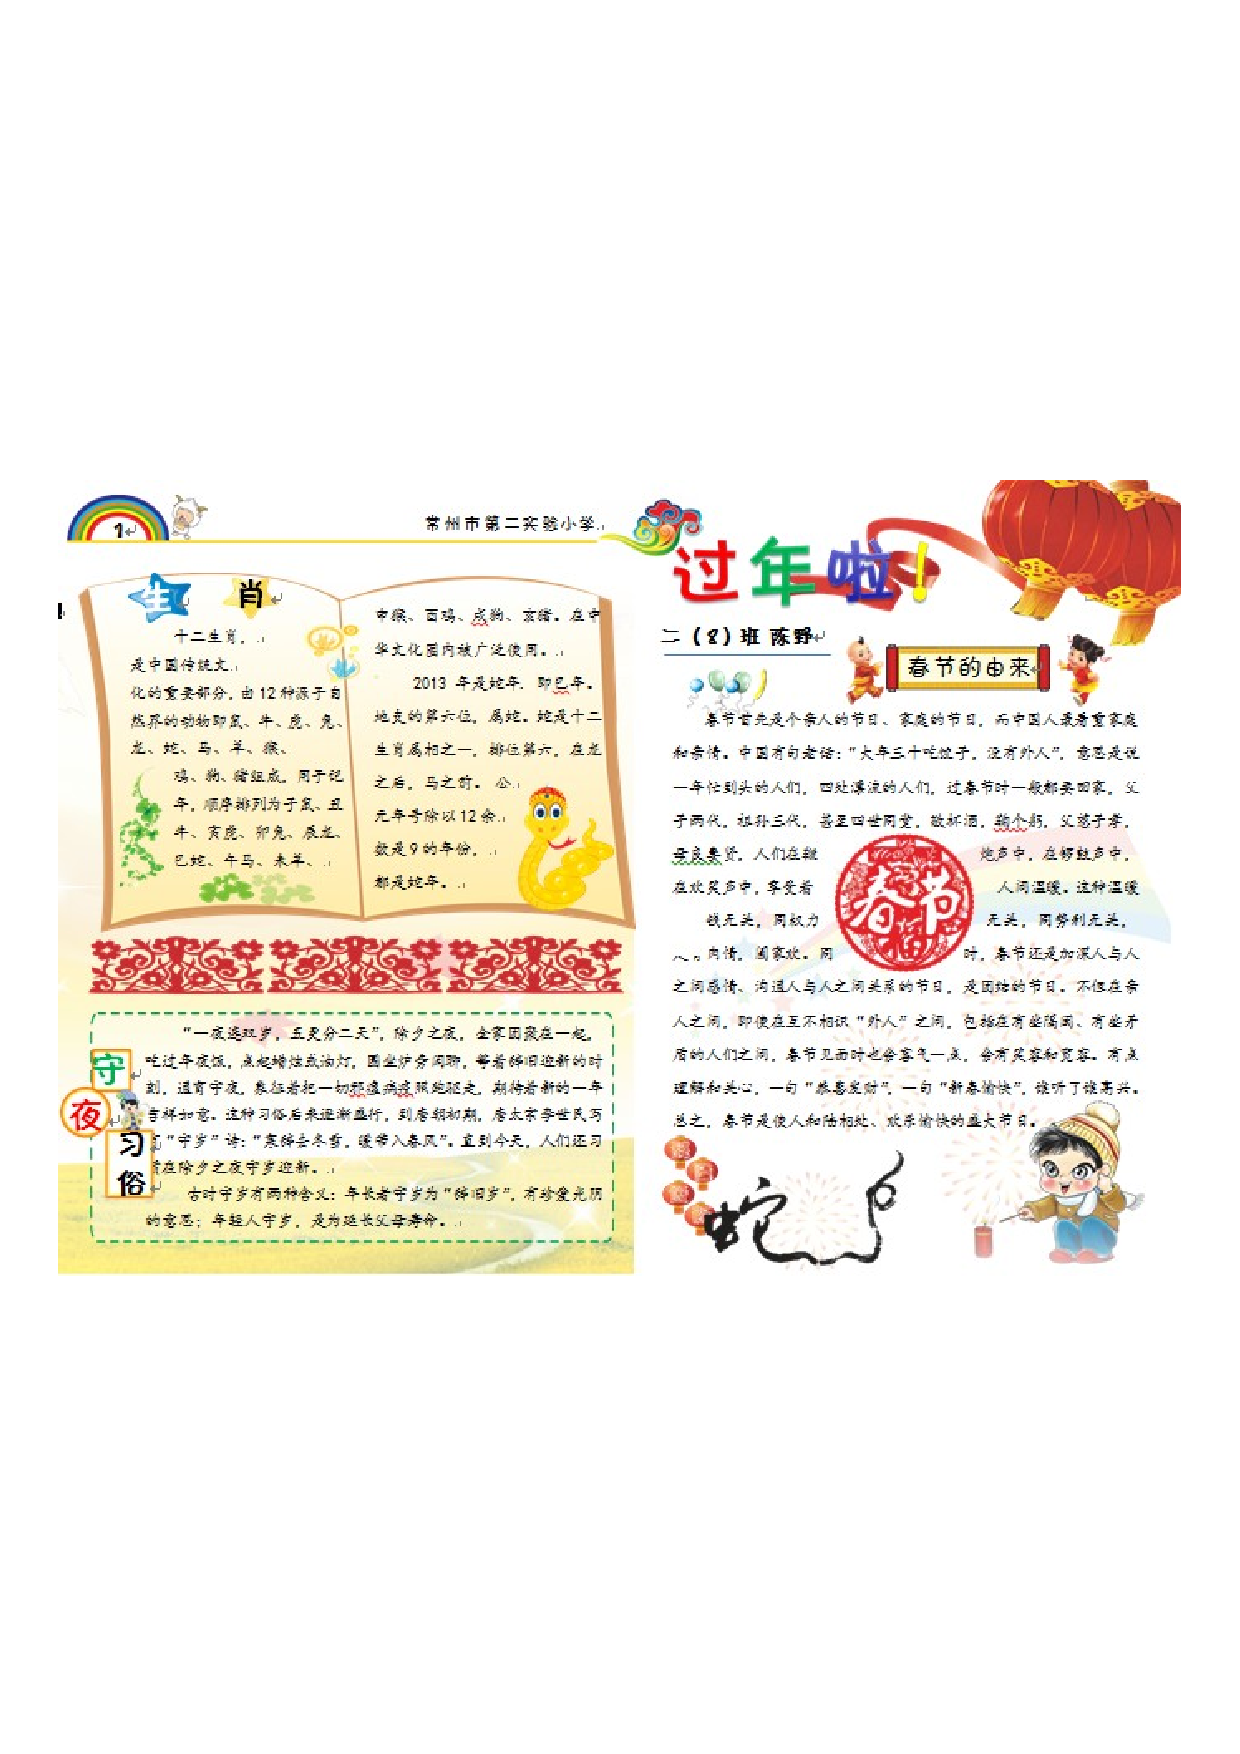 1
常州市第二实验小学
生 肖
十二生肖，
是中国传统文
化的重要部分，由12种源于自
然界的动物即鼠、牛、虎、兔、
龙、蛇、马、羊、猴、
鸡、狗、猪组成，用于记
年，顺序排列为子鼠、丑
牛、寅虎、卯兔、辰龙、
巳蛇、午马、未羊、
申猴、酉鸡、戌狗、亥猪。在中
华文化圈内被广泛使用。
2013 年是蛇年，即巳年。
地支的第六位，属蛇。蛇是十二
生肖属相之一，排位第六，在龙
之后，马之前。 公
元年号除以12余
数是9的年份，
都是蛇年。
守
夜
习
俗
“一夜连双岁，五更分二天”，除夕之夜，全家团聚在一起，
吃过年夜饭，点起蜡烛或油灯，围坐炉旁闲聊，等着辞旧迎新的时
刻，通宵守夜，象征着把一切邪瘟病疫照跑驱走，期待着新的一年
吉祥如意。这种习俗后来逐渐盛行，到唐朝初期，唐太宗李世民写
“守岁”诗：“寒辞去冬雪，暖带入春风”。直到今天，人们还习
在除夕之夜守岁迎新。
古时守岁有两种含义：年长者守岁为“辞旧岁”，有珍爱光阴
的意思；年轻人守岁，是为延长父母寿命。
过年啦！
二（8）班 陈野
春节的由来
春节首先是个亲人的节日、家庭的节日，而中国人最看重家庭
和亲情。中国有句老话：“大年三十吃饺子，没有外人”，意思是说
一年忙到头的人们，四处漂流的人们，过春节时一般都要回家，父
子两代，祖孙三代，甚至四世同堂，敬杯酒，鞠个躬，父慈子孝，
母良妻贤，人们在鞭 炮声中，在锣鼓声中，
在欢笑声中，享受着 人间温暖。这种温暖
钱无关，同权力 无关，同势利无关，
内情，阖家欢。同 时，春节还是加深人与人
之间感情、沟通人与人之间关系的节日，是团结的节日。不但在亲
人之间，即使在互不相识“外人”之间，包括在有些隔阂、有些矛
盾的人们之间，春节见面时也会客气一点，会有笑容和宽容。有点
理解和关心，一句“恭喜发财”，一句“新春愉快”，谁听了谁高兴。
总之，春节是使人和陆相处、欢乐愉快的盛大节日。
春节
福
蛇